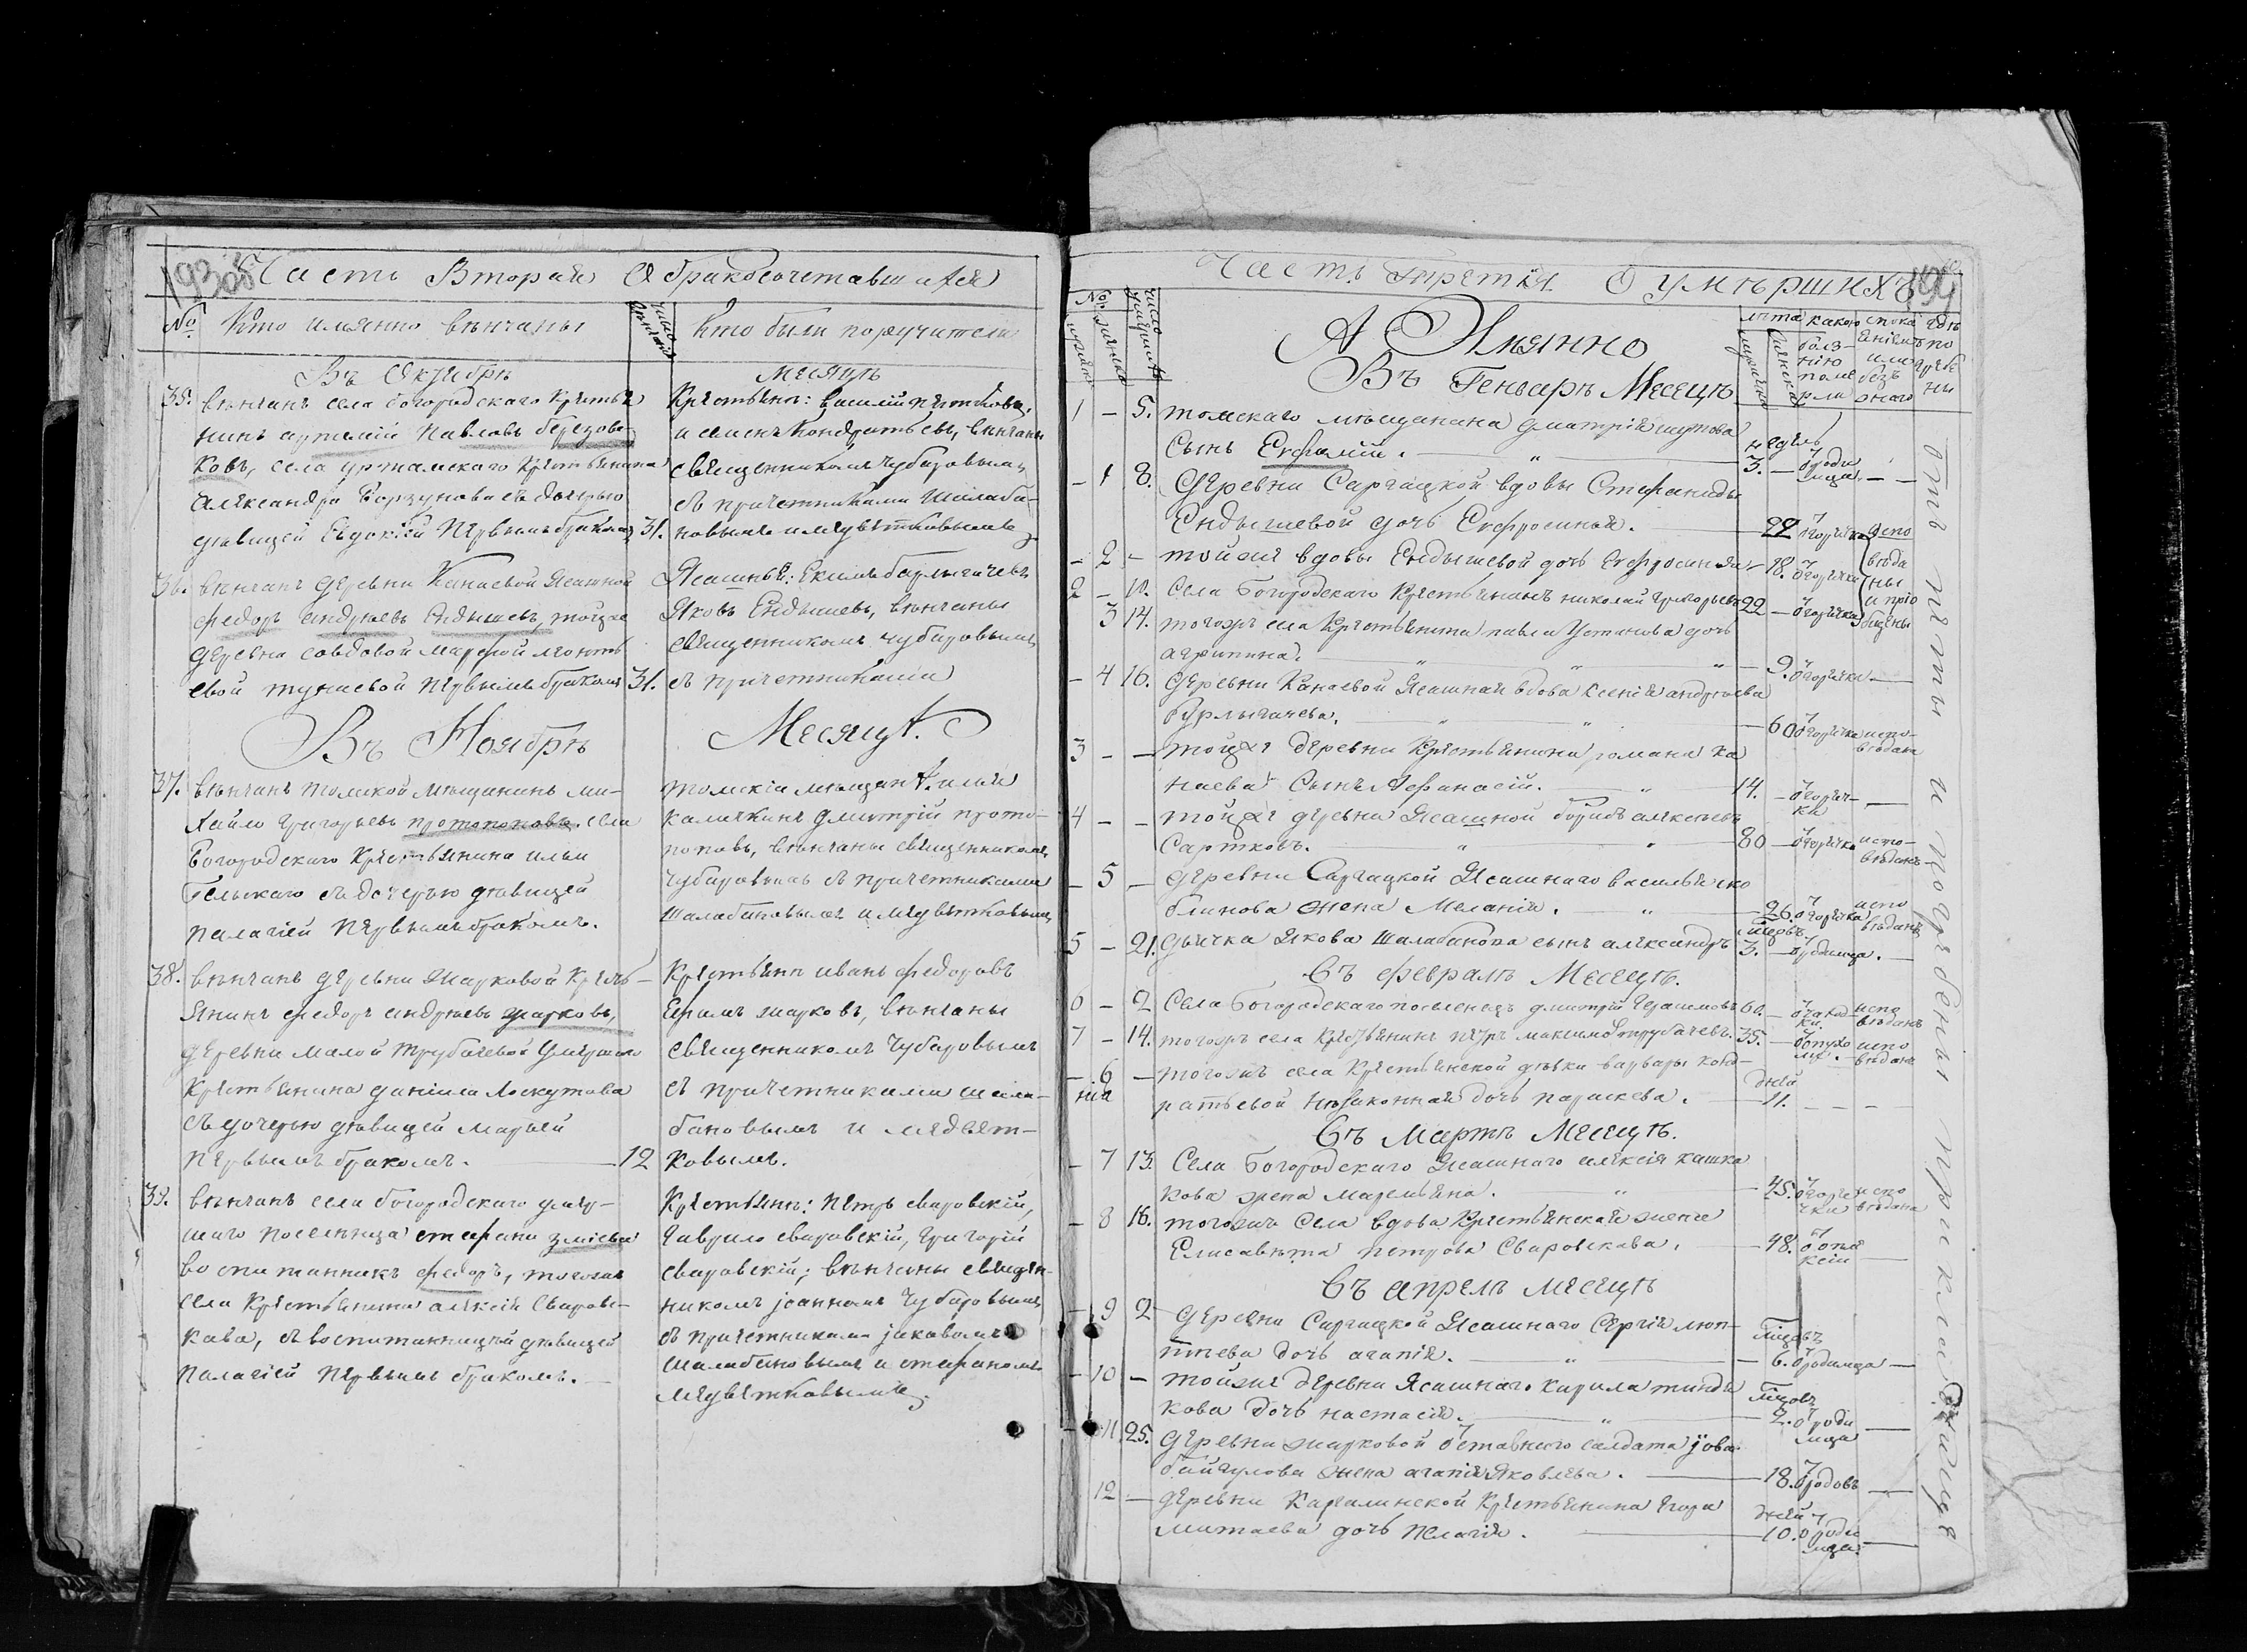 193об
Часть Вторая О бракосочетавшихся
№ Кто имянно венчаны
число венчаній
Кто были поручители
Въ Октябрѣ месяцѣ
35. венчанъ села богородского крестья
нинъ артемій павловъ березовс-
ковъ, села уртамскаго крестьянина
александра Борзунова съ дочерью
девицей Евдокіей первымъ бракомъ 31.
Крестьянъ: василій
и семенъ Кондратьевъ, венчаны
священникомъ чубаровымъ
съ причетниками Шалаба-
новымъ и медветковымъ
36. венчанъ деревни Канаевой Ясашной
федоръ андреевъ Ендышевъ, тойже
деревни совдовой марфой леонть
евой тунаевой первымъ бракомъ 31.
Ясашныя: Екимъ барлыгачевъ
Яковъ Ендышевъ, венчаны
священникомъ чубаровымъ
съ причетниками
Въ Ноябрѣ Месяцѣ.
37. венчанъ томской мещанинъ ми-
хайло григорьевъ протопоповъ. села
Богородскаго крестьянина ильи
Бельскаго съ дочерью девицей
пелагіей первымъ бракомъ.
томскіи мещанѣ. илья
калачкинъ дмитрій прото-
поповъ, венчаны священникомъ
чубаровымъ съ причетниками
Шалабановымъ и медветковымъ
38. венчанъ деревни Жарковой крест-
янинъ федоръ андреевъ жарковъ,
деревни малой трубачевой умершаго
крестьянина даніила Лоскутова
съ дочерью девицей марьей
первымъ бракомъ. 12
Крестьяне иванъ федоровъ
Ефимъ жарковъ, венчаны
священникомъ Чубаровымъ
съ причетниками шала-
бановымъ и медвет-
ковымъ.
39. венчанъ села богородскаго умер-
шаго поселенца стефана змѣева
воспитанникъ федоръ, тогожъ
села крестьянина алексія Сваровс-
кава, съ воспитанницей девицей
палагіей первымъ бракомъ.
Крестьянъ: петръ сваровскій,
Гаврило сваровскій, Григорій
сваровскій; венчаны священ-
никомъ јоанномъ Чубаровымъ
съ причетниками јаковомъ
Шалабановымъ и стефаномъ
медветковымъ.
Часть третія О умершихъ
194
№ мужеска женска
число умершихъ
А Имянно
Въ Генваре Месецѣ
лѣта мужеска женска
какою болз-
нію поме
рли
спока
еніемъ
или
безъ
онаго
гдѣ
по
гребе
ны
1 – 5. томскаго мещанина дмитрія шутова
сынъ Ехфимій. недель 3. – ѿроди
мца. –
– 1 8. Деревни Саргацкой вдовы Стефаниды
Ендышевой дочь Ехфросинья. 22 ѿгорячки испо
– 2 – тойже вдовы Ендышевой дочь Ехфросинья – 18. ѿгорячки веда
ны
2 – 10. Села Богородскаго Крестьянинъ николай григорьевъ 22 – ѿгорячки и прио
бщены
3 14. тогожъ села Крестьянина павла Устинова дочь
агрипина. 9. ѿгорячки –
– 4 16. Деревни Канаевой Ясашная вдова ксенія андреева
бурлыгачева. – 60 ѿгорячки испо-
ведана
3 – – тойже деревни Крестьянина романа ка
наева Сынъ Афанасій. 14. – ѿгоряч-
ки –
4 – – тойже деревни Ясашной борисъ алексеевъ
Сартковъ. 80 – ѿгорячки испо-
веданъ
– 5 – Деревни Саргацкой Ясашнаго василья ско
блинова жена Меланія. – 26. ѿгорячки испо
ведана
5 – 21. Дьячка Якова Шалабанова сынъ александръ 3. – ѿродимца. –
Въ февралѣ Месецѣ.
6 – 2 Села Богородскаго поселенецъ дмитрій Герасимовъ 60. – ѿчаход-
ки. испо
веданъ
7 – 14. тогожъ села Крестьянинъ петръ максимовъ трубачевъ. 35. – ѿопухо
ли. – испо
веданъ
– 6 – тогожъ села Крестьянской девки варвары конд-
ратьевой незаконная дочь параскева. дней 11. – – –
Въ Мартѣ Месецѣ.
– 7 13. Села Богородскаго Ясашнаго алексія кашка
кова жена маремьяна. – 45. ѿгоря
чки испо
ведана
– 8 16. тогожъ Села вдова Крестьянская женка
Елисавета петрова Сваровскава. – 48. –
Въ апрелѣ месецѣ
– 9 2 Деревни Саргацкой Ясашнаго Сергія люп-
тева дочь агапія. – 6. ѿродимца –
– 10 – тойже деревни Ясашнаго кирила тинди
кова дочь настасія. 2. ѿроди
мца –
– 11 25. Деревни жарковой ѿставнаго салдата јова
байгулова жена агапія Яковлева. 18. ѿродовъ –
12 – деревни Каргалинской Крестьянина Егора
митаева дочь пелагія. дней 10. ѿроди
мца. –
отпеты и погребены при кладбище